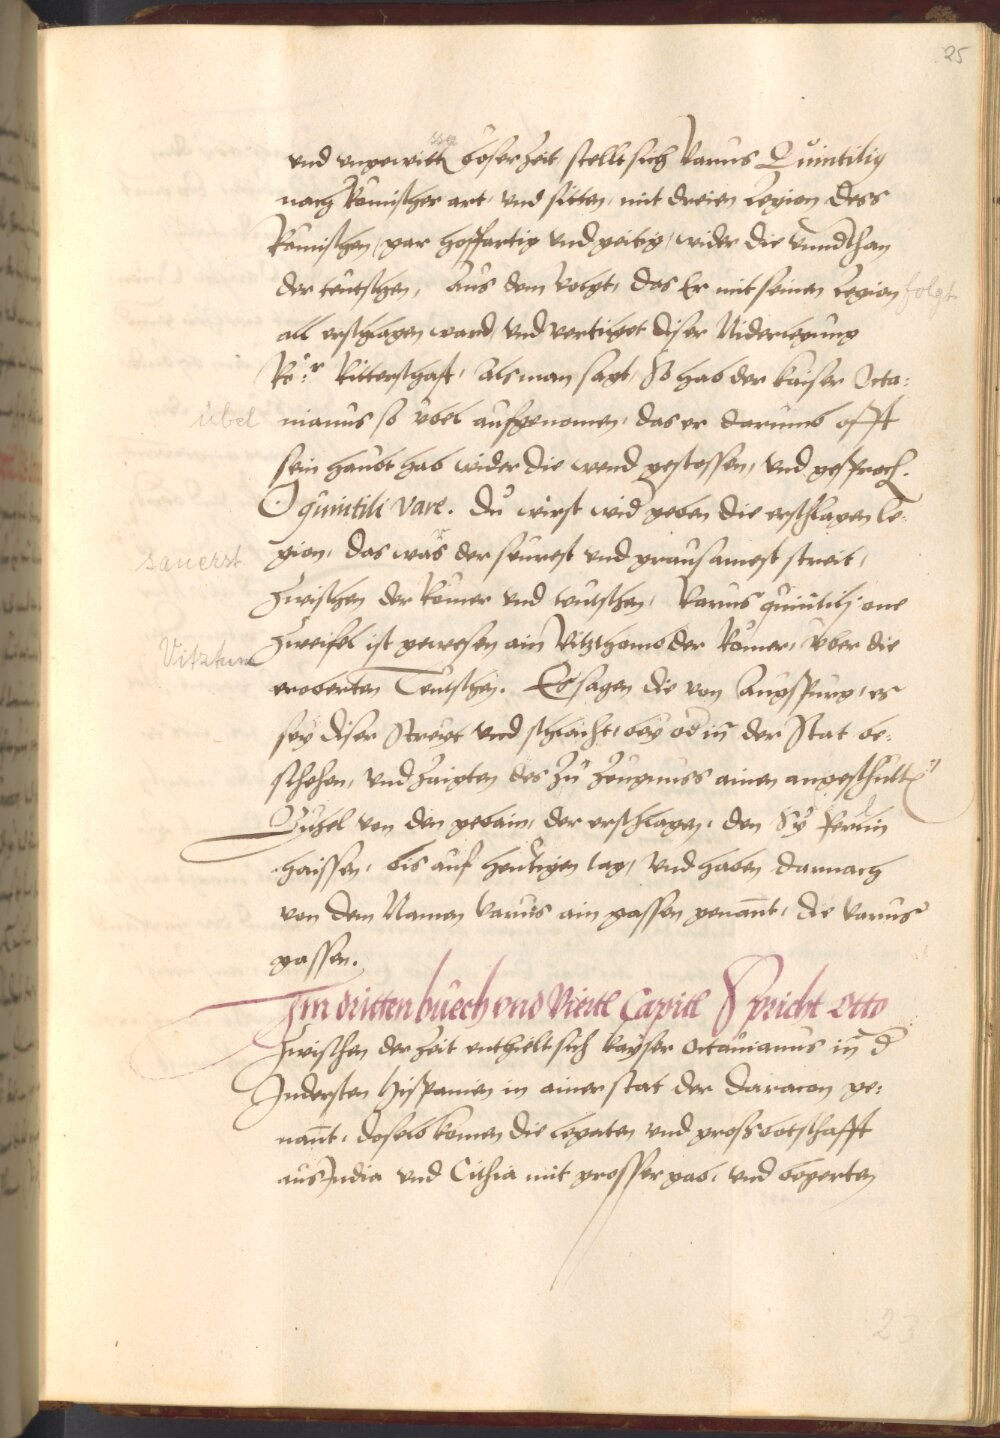 25
vnd vngewitt böser Zeit stellt sich Varus Quintiliꝯ
nach Römischer art, vnd sitten, mit dreien Legion dess
Römischen, gar hoffartig vnd geitig, wider die
der teutschen, Aus dem volgt, das Er mit seinen Legion folgt
all erschlagen ward, vnd vertilget diser Niderlegung
Rö:r Ritterschaft, Als man sagt, So hab der kaiser Octa:
übel
uianus so vbel aufgenomen, das er darumb offt
sein haubt hab wider die wend gestossen, vnd gesproch.
O quintili Vare. Du wirst wid geben die erschlagen le:
sauerst
gion, das was der seurest vnd grausamest streit,
Zwischen der Römer vnd teutschen, Varus quintilj one
Vitztum
Zweifel ist gewesen ain Vitzthomb der Römer, vber die
eroberten Teutschen. Es sagen die von Augspurg, es
sey diser Streyt vnd schlacht, bey od in der Stat be:
schehen, vnd Zaigten des Zu Zeugnuss ainen angeschutt
Buhel von den gebain, der erschlagen, den Sy
haissen, bis auf heutigen tag, vnd haben darnach
von dem Namen Varus ain gassen genannt, die Varus
gassen.
Im dritten buech vnd Viertl Capitl Spricht Otto
Zwischen der Zeit enthielt sich kayser Octauianus in d
Indersten Hispanien in ainer stat der daracon ge:
nannt, daselb komen die legaten vnd gross botschafft
aus India vnd Cithia mit grosser gab, vnd begerten
23